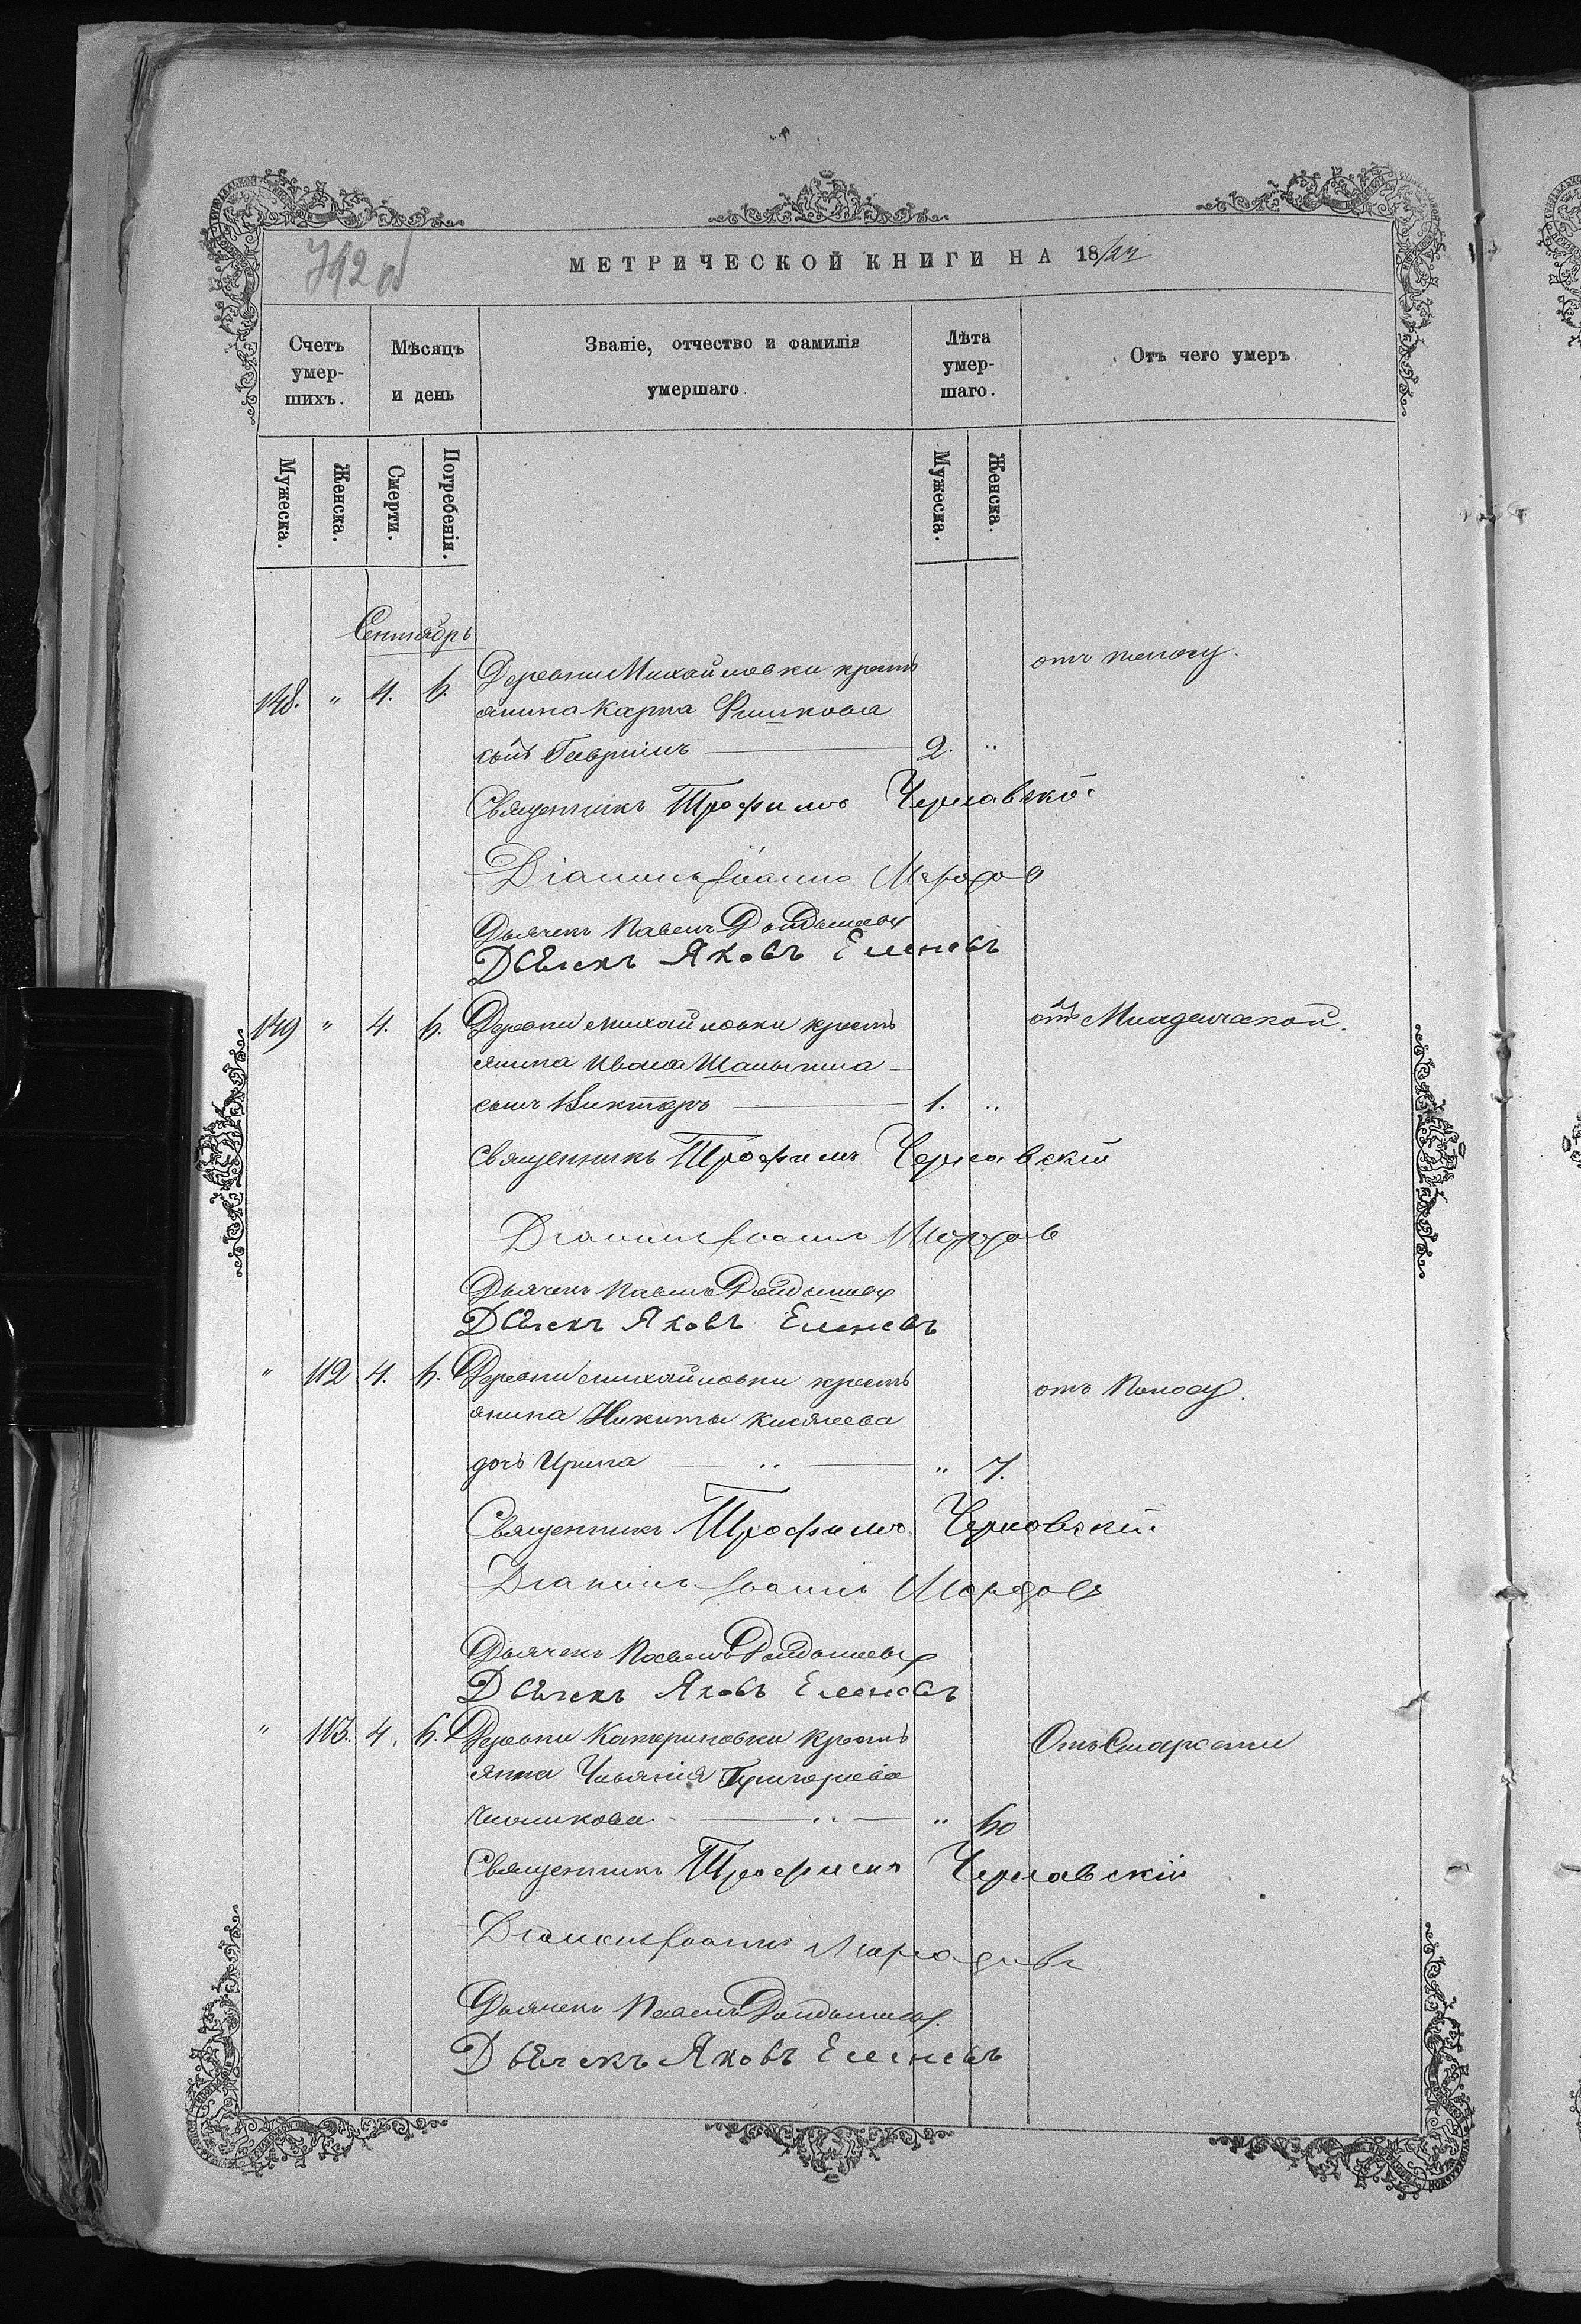 792об
МЕТРИЧЕСКОЙ КНИГИ НА 18
Счетъ умер-шихъ.
Мѣсяцъ и день
Званіе, отчество и фамилія умершаго.
Лѣта умер-шаго.
Отъ чего умеръ
Мужеска.
Женска.
Смерти.
Погребенія.
Мужеска.
Женска.
Сентябрь
148. " 4. 6. Деревни Михайловки кресть отъ поносу.
янина Карпа Фишкова
сынъ Гавріилъ 2. "
Священникъ Трофимъ Чернавскій
Діаконъ Іоаннъ
Дьячекъ Павелъ
Дьячекъ Яковъ Еленевъ
149 " 4. 6. Деревни Михайловки кресть отъ Младенческой.
янина Ивана Шалыгина
сынъ Викторъ 1. "
Священникъ Трофимъ Чернавскій
Діаконъ Іоаннъ
Дьячекъ Павелъ
Дьячекъ Яковъ Еленевъ
" 112 4. 6. Деревни Михайловки кресть отъ Поносу.
янина Никиты Киселева
дочь Ирина " 7.
Священникъ Трофимъ Чернавскій
Діаконъ Іоаннъ
Дьячекъ Павелъ
Дьячекъ Яковъ Еленевъ
" 113. 4. 6. Деревни Катериновки Кресть Отъ Старости
янка Ульянія Григорьева
" 60
Священникъ Трофимъ Чернавскій
Діаконъ Іоаннъ
Дьячекъ Павелъ
Дьячекъ Яковъ Еленевъ